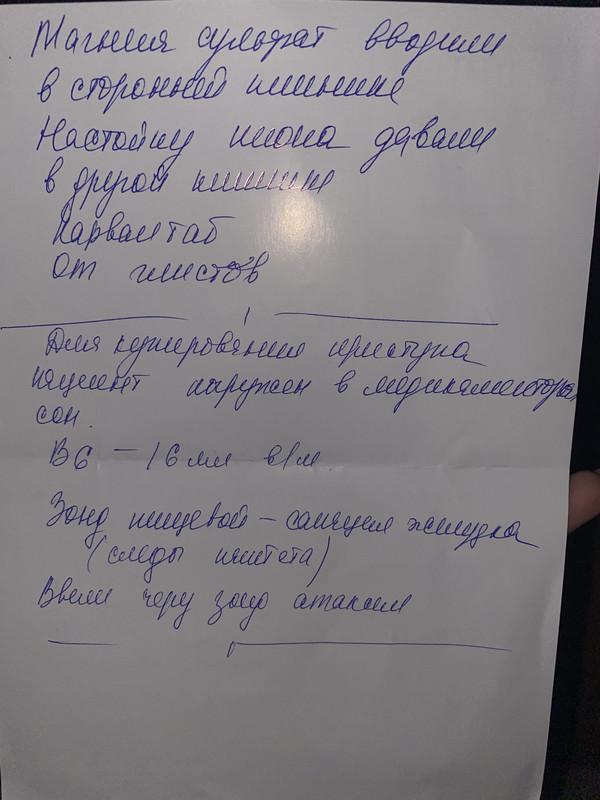 Магния сульфат вводили
в сторонней клинике
Настойку пиона давали
в другой клинике
Карвалтаб
От глистов
Для купирования приступа
пациент погружен в медикаментозн
сон.
В6 – 16 мл в/м
Зонд пищевой – санация желудка
(следы паштета)
Ввели через зонд атаксил